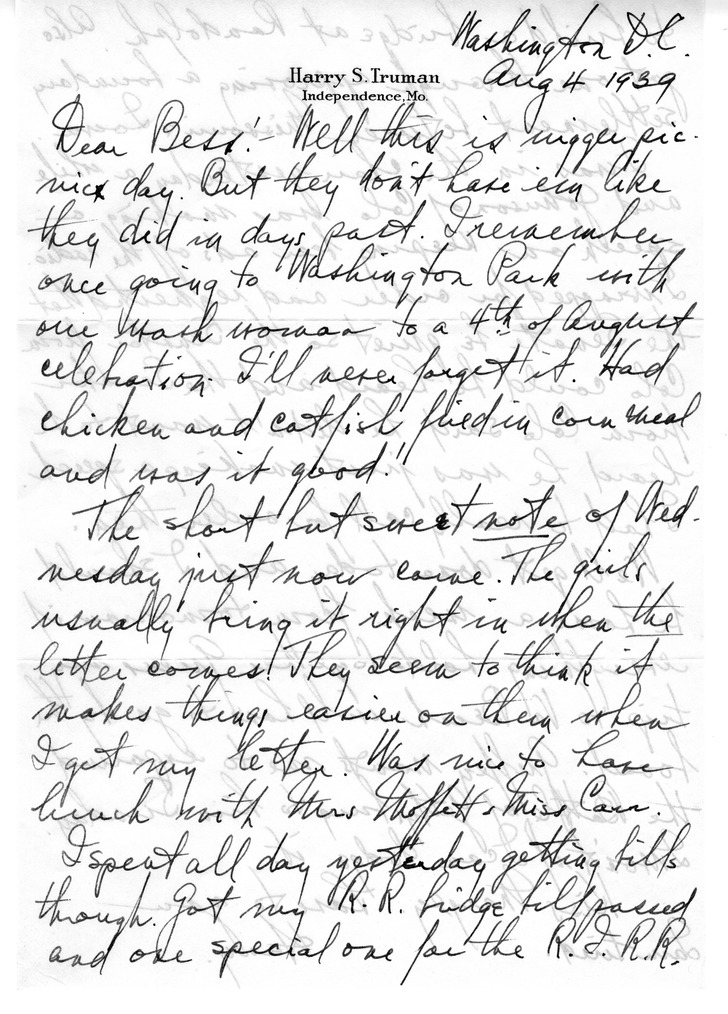 Washington D.C.
Aug 4 1939
Harry S. Truman
Independence, Mo.
Dear Bess:- Well this is nigger pic-
nic day. But they don't have em like
they did in days past. I remember
once going to Washington Park with
our wash woman to a 4th of August
celebration. I'll never forget it. Had
chicken and catfish fried in corn meal
and was it good!
The short but sweet note of Wed-
nesday just now came. The girls
usually bring it right in when the
letter comes. They seem to think it
makes things easier on them when
I get my letter. Was nice to have
lunch with Mrs Moffett & Miss Carr.
I spent all day yesterday getting bills
through. Got my R.R. bridge bill passed
and one special one for the R.I.R.R.